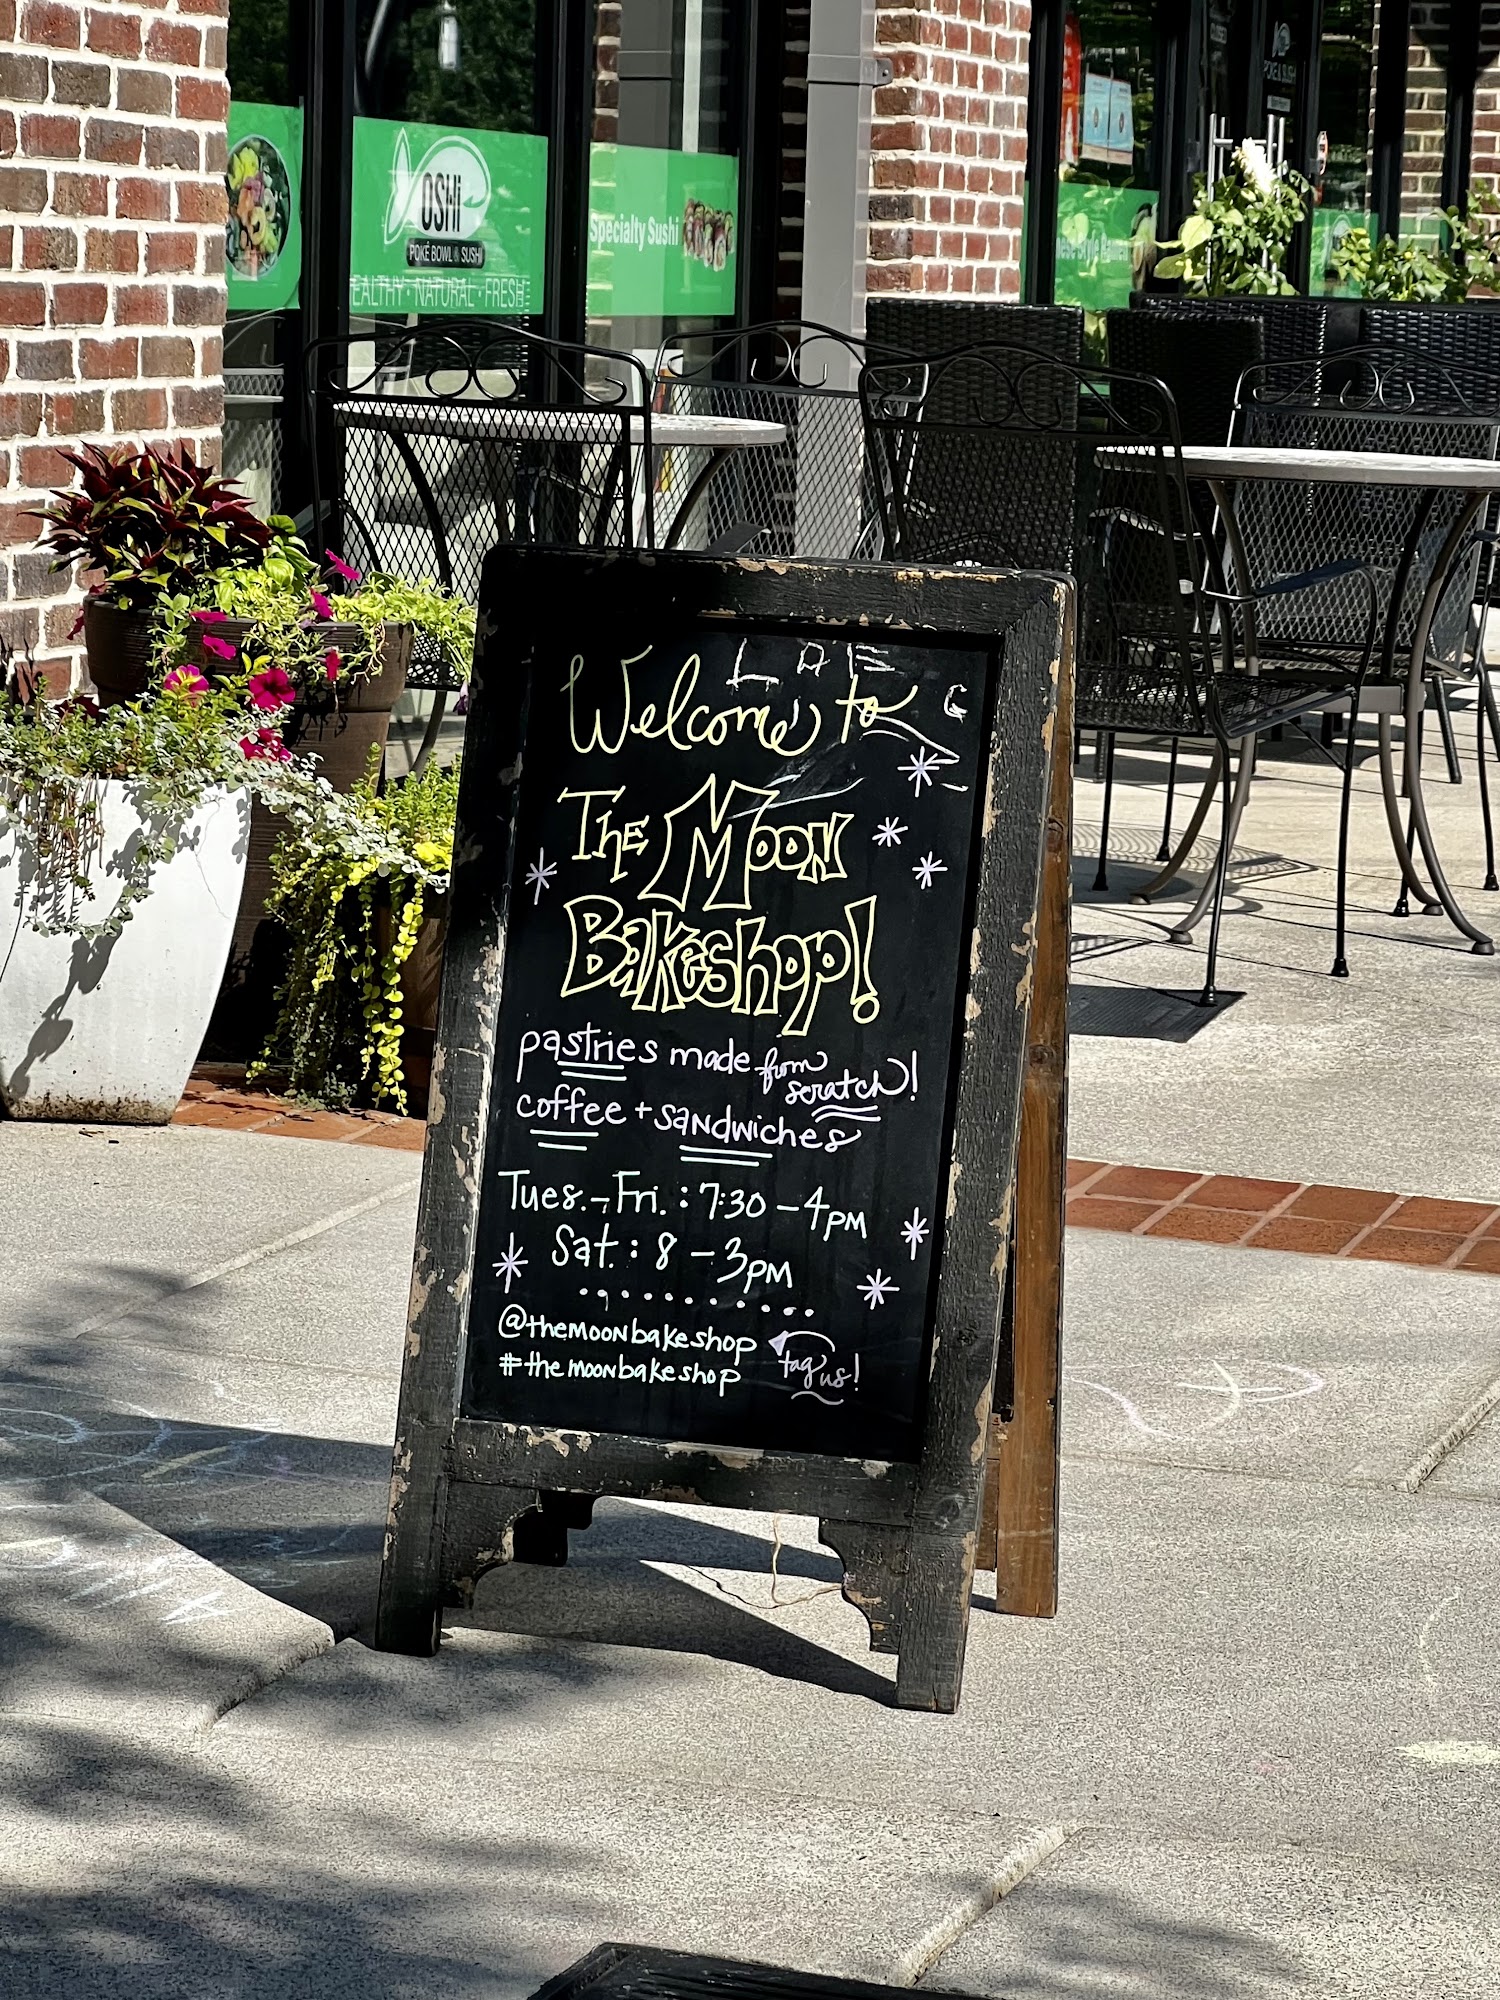 OSHi
POKÉ BOWL & SUSHI
EALTHY · NATURAL · FRESH
Specialty Sushi
LAE
G
Welcome to
The Moon
Bakeshop!
pastries made from scratch!
coffee + sandwiches
Tues. - Fri. : 7:30 - 4PM
Sat. : 8 - 3PM
@themoonbakeshop
#themoonbakeshop
tag us!